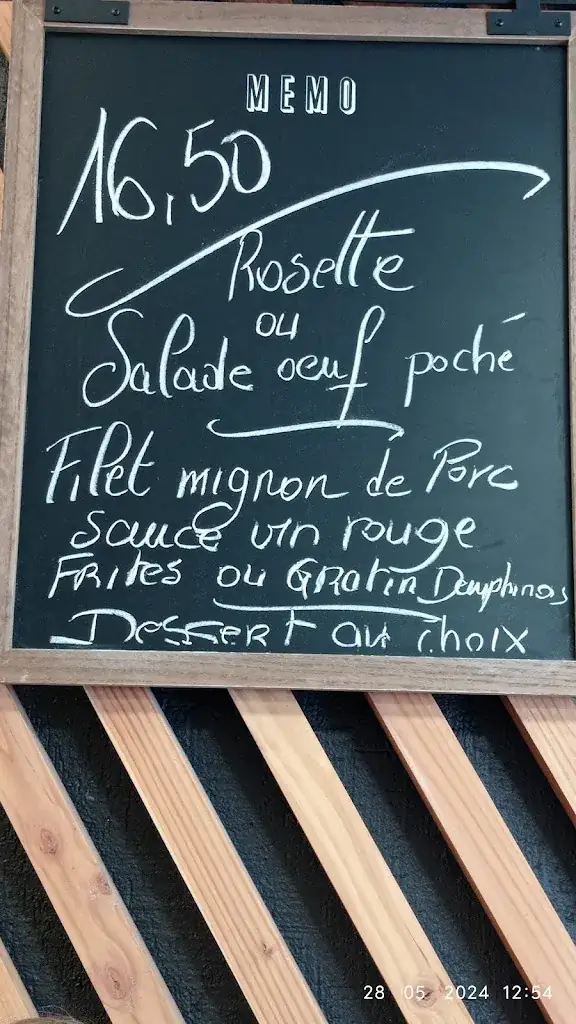 MEMO
16,50
Rosette
ou
Salade oeuf poché
Filet mignon de Porc
Sauce vin rouge
Frites ou Gratin Dauphinois
Dessert au choix
28 05 2024 12:54